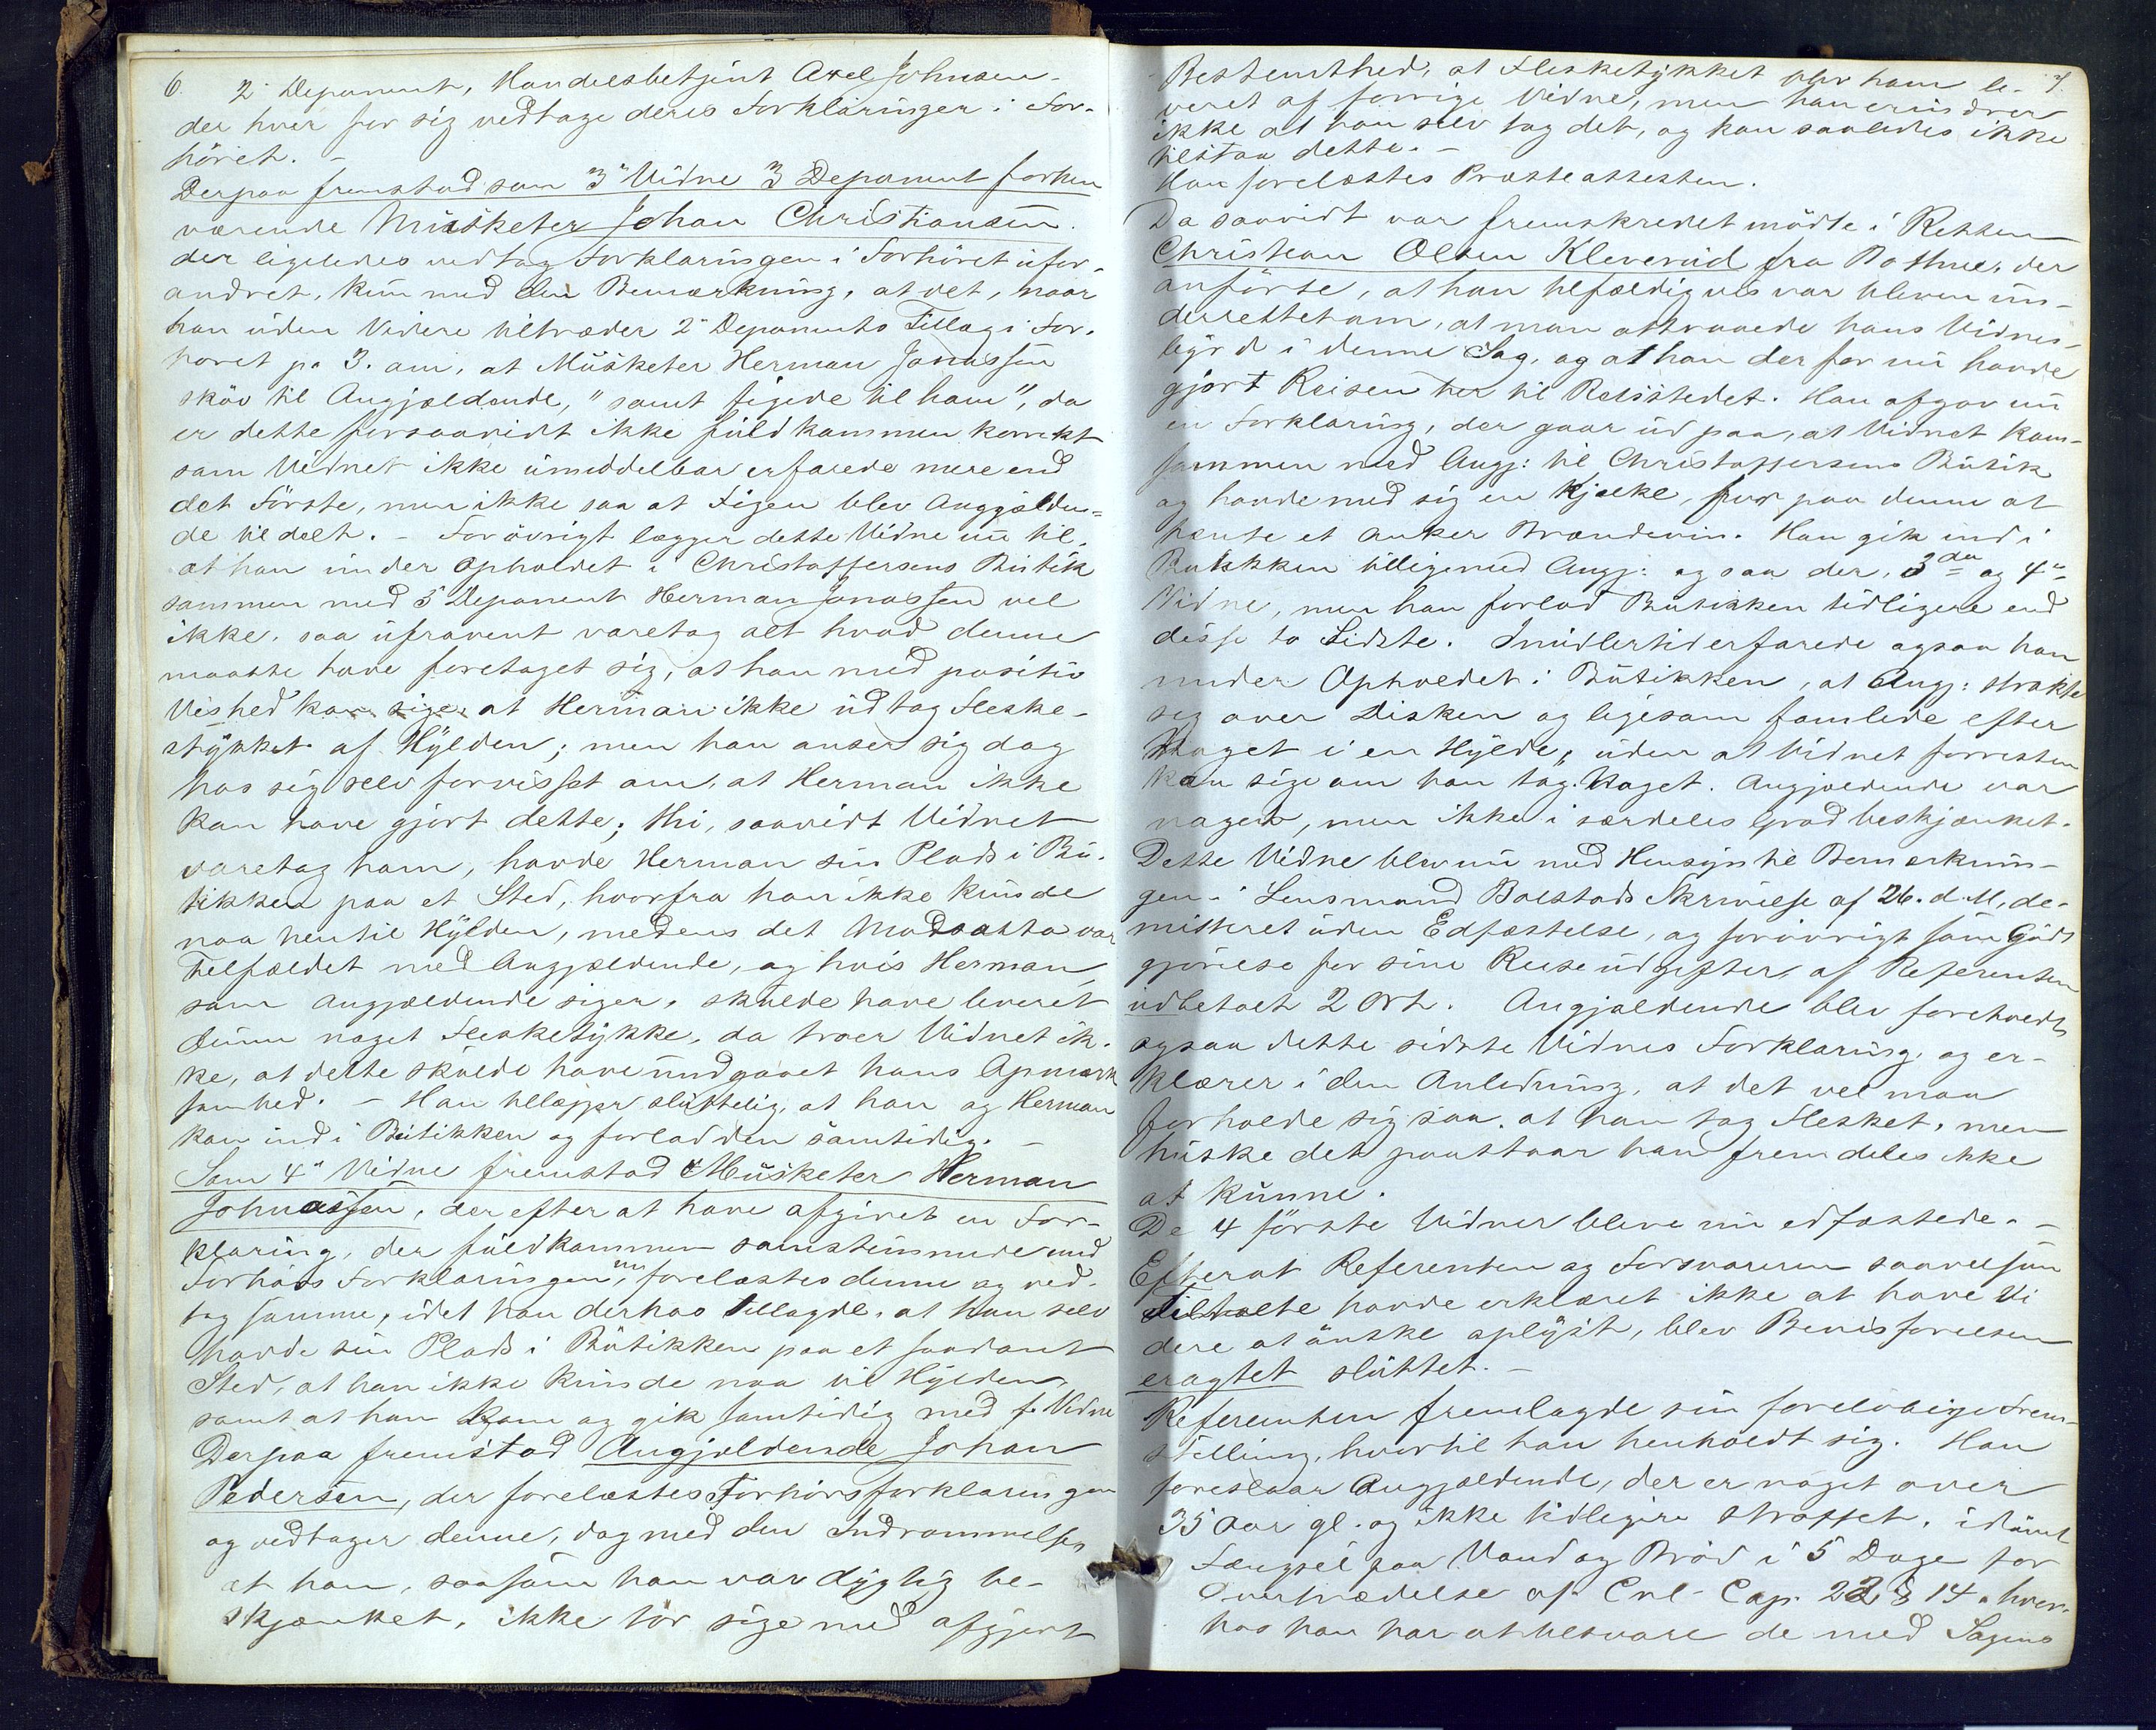 6.
2. Deponent, Handelsbetjent Axel Johnsen
der hver for sig vedtage deres Forklaringer i For-
höret. –
Derpaa fremstod som 3" Vidne 3 Deponent forhen
værende Musketer Johan Christiansen.
der ligeledes vedtog Forklaringen i Forhöret ufor-
andret, kun med den Bemærkning, at det, naar
han uden Videre tiltræder 2" Deponents Tillæg i For-
höret pa 3. om, at Musketer Herman Jonassen
sköv til Angjældende, "samt figede til ham", da
er dette forsaavidt ikke fuldkommen korrekt
som Vidnet ikke umiddelbar erfarede mere end
det Förste, men ikke saa at Figen blev Anggjælden-
de tildelt. – Forövrigt lægger dette Vidne nu til,
at han under Opholdet i Christoffersens Butik
sammen med 5 Deponent Herman Jonassen vel
ikke, saa ufravent varetog alt hvad denne
maatte have foretaget sig, at han med positiv
Vished kan sige, at Herman ikke udtog Fleske-
stykket af Hylden; men han anser sig dog
hos sig selv forvisset om, at Herman ikke
kan have gjort dette; thi, saavidt Vidnet
varetog ham, havde Herman sin Plads i Bu-
tikken paa et Sted, hvorfra han ikke kunde
naa hen til Hylden, medens det Modsatte var
Tilfældet med Angjældende, og hvis Herman,
som Angjældende siger, skulde have leveret
denne noget Fleskestykke, da troer Vidnet ik-
ke, at dette skulde have undgaaet hans Opmærk
somhed. – Han tillægger sluttelig, at han og Herman
kom ind i Butikken og forlod den samtidig. –
Som 4" Vidne fremstod Musketer Herman
Johnassen, der efter at have afgivet en For-
klaring, der fuldkommen samstemmede med
Forhörs Forklaringen, forelæstes denne og ved-
tog samme, idet han derhos tillagde, at han selv
havde sin Plads i Butikken paa et saadant
Sted, at han ikke kunde naa til Hylden,
samt at han kom og gik samtidig med f. Vidne
Derpaa fremstod Angjældende Johan
Pedersen, der forelæstes Forhörsforklaringen
og vedtager denne, dog med den Indrømmelse,
at han, saasom han var dygtig be-
skjænket, ikke tör sige med afgjort
7.
Bestemthed, at Fleskestykket blev ham le-
veret af forrige Vidne, men han erindrer
ikke at han selv tog det, og kan saaledes ikke
tilstaa dette. –
Han forelæstes Præsteattesten.
Da saavidt var fremskredet mödte i Retten
Christian Olsen Kleverud fra Bothne, der
anförte, at han tilfældigvis var bleven un-
derrettet om, at man attraaede hans Vidnes-
byrd i denne Sag, og at han derfor nu havde
gjort Reisen her til Retsstedet. Han afgav nu
en Forklaring, der gaar ud paa, at Vidnet kom
sammen med Angj: til Christoffersens Butik
og havde med sig en Kjælke, for paa denne at
hente et Anker Brændevin. Han gik ind i
Butikken tilligemed Angj: og saa der, 3die og 4"
Vidne, men han forlod Butikken tidligere end
disse to Sidste. Imidlertid erfarede ogsaa han
under Opholdet i Butikken, at Angj: strakte
sig over Disken og ligesom famlede efter
Noget i en Hylde, uden at Vidnet forresten
kan sige om han tog Noget. Angjældende var
nogen, men ikke i særdeles Grad beskjænket.
Dette Vidne blev nu med Hensyn til Bemærknin-
gen i Lensmand Bolstads Skrivelse af 26. d. M. de-
mitteret uden Edfæstelse, og forövrigt som God
gjörelse for sine Reiseudgifter af Referenten
udbetalt 2 Ort. Angjældende blev foreholdt
ogsaa dette sidste Vidnes Forklaring, og er-
klærer i den Anledning, at det vel maa
forholde sig saa, at han tog Flesket, men
huske det paastaar han fremdeles ikke
at kunne.
De 4 förste Vidner bleve nu edfæstede. –
Efterat Referenten og Forsvareren saavelsom
Tiltalte havde erklæret ikke at have Vi
dere at önske oplyst, blev Bevisförelsen
eragtet sluttet. –
Referenten fremlagde sin forelöbige Frem-
stilling, hvortil han henholdt sig. Han
foreslaar Angjældende, der er noget over
35 Aar gl. og ikke tidligere straffet, idömt
Fængsel paa Vand og Bröd i 5 Dage for
Overtrædelse af Crl. Cap. 22 § 14, hvor-
hos han har at tilsvare de med Sagens